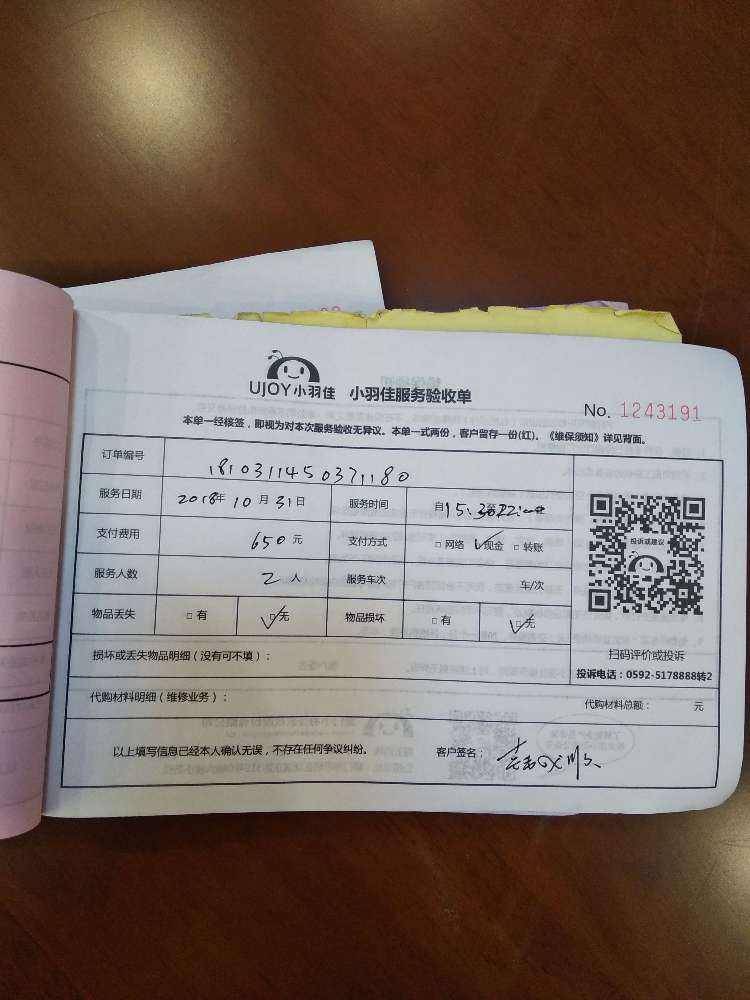 UJOY小羽佳 小羽佳服务验收单
No. 1243191
本单一经核签，即视为对本次服务验收无异议。本单一式两份，客户留存一份(红)，《维保须知》详见背面。
订单编号 1810311450371180
服务日期 2018年10月31日 服务时间 自15:30
支付费用 650元 支付方式 □网络 ☑现金 □转账
服务人数 2人 服务车次 车/次
物品丢失 □有 ☑无 物品损坏 □有 ☑无
投诉或建议
扫码评价或投诉
投诉电话：0592-5178888转2
损坏或丢失物品明细（没有可不填）：
代购材料明细（维修业务）： 代购材料总额： 元
以上填写信息已经本人确认无误，不存在任何争议纠纷。 客户签名：